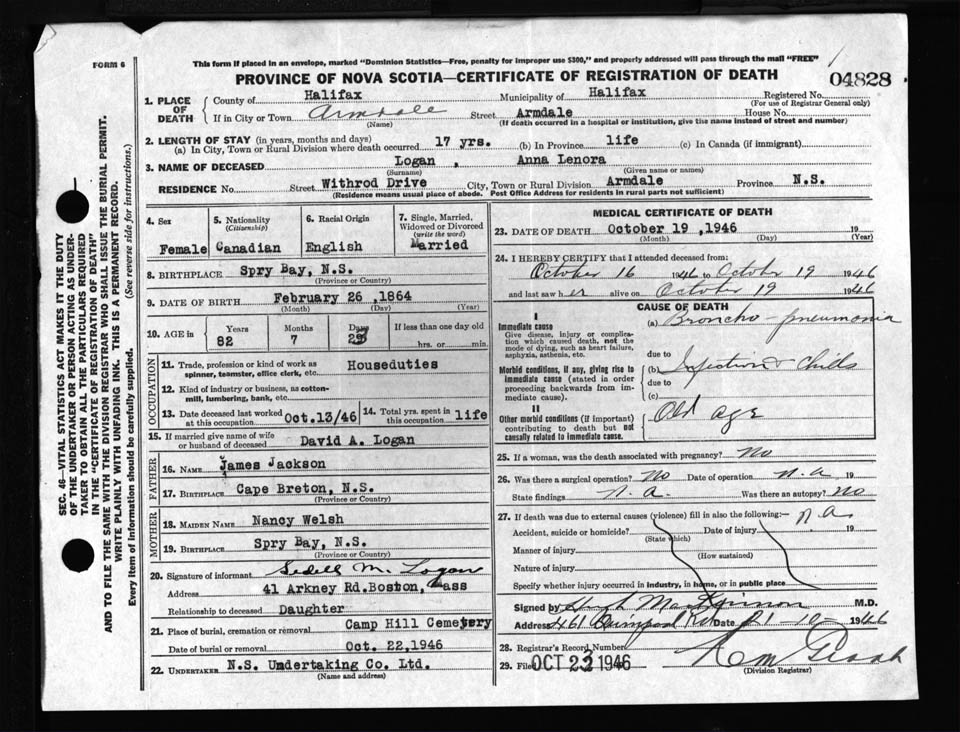 This form if placed in an envelope, marked "Dominion Statistics—Free, penalty for improper use $300," and properly addressed will pass through the mail "FREE"
FORM 6
PROVINCE OF NOVA SCOTIA—CERTIFICATE OF REGISTRATION OF DEATH
04828
1. PLACE OF DEATH County of Halifax Municipality of Halifax Registered No.
(For use of Registrar General only)
If in City or Town Armdale Street Armdale House No.
(Name) (If death occurred in a hospital or institution, give the name instead of street and number)
2. LENGTH OF STAY (in years, months and days)
(a) In City, Town or Rural Division where death occurred 17 yrs. (b) In Province life (c) In Canada (if immigrant)
3. NAME OF DECEASED Logan , Anna Lenora
(Surname) (Given name or names)
RESIDENCE No. Street Withrod Drive City, Town or Rural Division Armdale Province N.S.
(Residence means usual place of abode. Post Office Address for residents in rural parts not sufficient)
4. Sex Female
5. Nationality (Citizenship) Canadian
6. Racial Origin English
7. Single, Married, Widowed or Divorced (write the word) Married
8. BIRTHPLACE Spry Bay, N.S.
(Province or Country)
9. DATE OF BIRTH February 26 ,1864
(Month) (Day) (Year)
10. AGE in Years 82 Months 7 Days If less than one day old hrs. or min.
OCCUPATION
11. Trade, profession or kind of work as spinner, teamster, office clerk, etc. Houseduties
12. Kind of industry or business, as cotton-mill, lumbering, bank, etc.
13. Date deceased last worked at this occupation Oct.13/46
14. Total yrs. spent in this occupation life
15. If married give name of wife or husband of deceased David A. Logan
FATHER
16. NAME James Jackson
17. BIRTHPLACE Cape Breton, N.S.
(Province or Country)
MOTHER
18. MAIDEN NAME Nancy Welsh
19. BIRTHPLACE Spry Bay, N.S.
(Province or Country)
20. Signature of informant M. Logan
Address 41 Arkney Rd.Boston, Mass
Relationship to deceased Daughter
21. Place of burial, cremation or removal Camp Hill Cemetery
Date of burial or removal Oct. 22,1946
22. UNDERTAKER N.S. Undertaking Co. Ltd.
(Name and address)
MEDICAL CERTIFICATE OF DEATH
23. DATE OF DEATH October 19 ,1946
(Month) (Day) (Year)
24. I HEREBY CERTIFY that I attended deceased from:
October 16 1946 to October 19 1946
and last saw her alive on October 19 1946
CAUSE OF DEATH
I
Immediate cause (a) Broncho-pneumonia
Give disease, injury or complication which caused death, not the mode of dying, such as heart failure, asphyxia, asthenia, etc.
due to
Morbid conditions, if any, giving rise to immediate cause (stated in order proceeding backwards from immediate cause). (b) Infection & Chills
due to
(c)
II
Other morbid conditions (if important) contributing to death but not causally related to immediate cause. Old age
25. If a woman, was the death associated with pregnancy? No
26. Was there a surgical operation? No Date of operation N.A 19
State findings N.A. Was there an autopsy? No
27. If death was due to external causes (violence) fill in also the following:— N.A.
Accident, suicide or homicide? Date of injury 19
(State which)
Manner of injury
(How sustained)
Nature of injury
Specify whether injury occurred in industry, in home, or in public place
Signed by Hugh MacKinnon M.D.
Address 461 Date 21-10 1946
28. Registrar's Record Number
29. Filed OCT 23 1946
(Division Registrar)
SEC. 46—VITAL STATISTICS ACT MAKES IT THE DUTY
OF THE UNDERTAKER OR PERSON ACTING AS UNDER-
TAKER TO OBTAIN ALL THE PARTICULARS REQUIRED
IN THE "CERTIFICATE OF REGISTRATION OF DEATH"
AND TO FILE THE SAME WITH THE DIVISION REGISTRAR WHO SHALL ISSUE THE BURIAL PERMIT.
WRITE PLAINLY WITH UNFADING INK. THIS IS A PERMANENT RECORD.
Every item of Information should be carefully supplied. (See reverse side for instructions.)